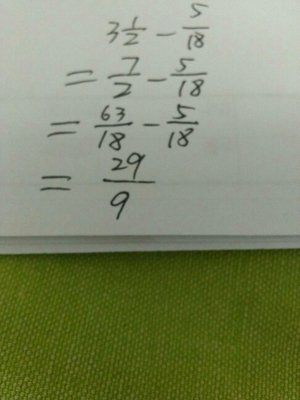 3 1/2 - 5/18
= 7/2 - 5/18
= 63/18 - 5/18
= 29/9